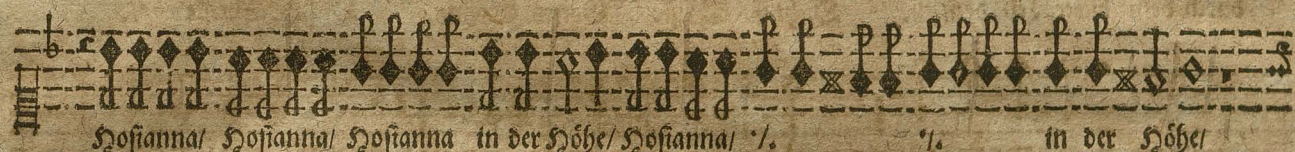 Hosianna/ Hosianna/ Hosianna in der Höhe/ Hosianna/ ⁒ ⁒ in der Höhe/